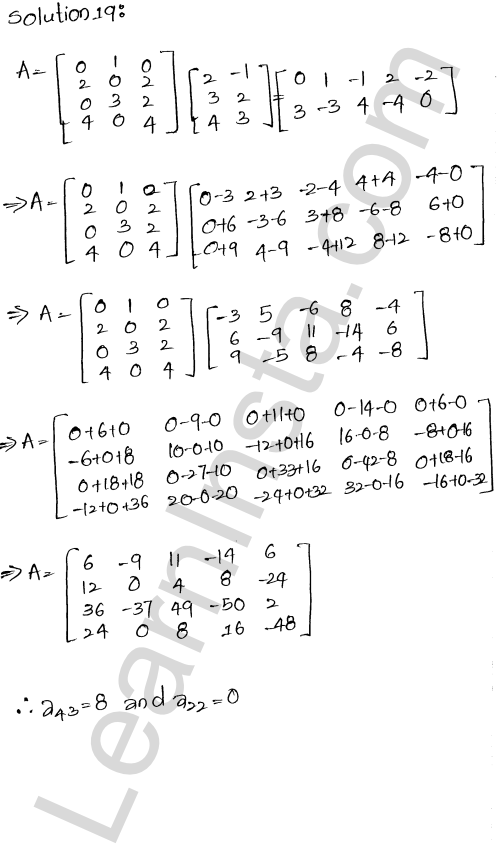 Solution 19:
A = [ 0 1 0 ] [ 2 -1 ] = [ 0 1 -1 2 -2 ]
2 0 2 3 2 3 -3 4 -4 0
0 3 2 4 3
4 0 4
⇒ A = [ 0 1 0 ] [ 0-3 2+3 -2-4 4+4 -4-0 ]
2 0 2 0+6 -3-6 3+8 -6-8 6+0
0 3 2 0+9 4-9 -4+12 8-12 -8+0
4 0 4
⇒ A = [ 0 1 0 ] [ -3 5 -6 8 -4 ]
2 0 2 6 -9 11 -14 6
0 3 2 9 -5 8 -4 -8
4 0 4
⇒ A = [ 0+6+0 0-9-0 0+11+0 0-14-0 0+6-0 ]
-6+0+8 10-0-10 -12+0+16 16-0-8 -8+0-16
0+18+18 0-27-10 0+33+16 0-42-8 0+18-16
-12+0+36 20-0-20 -24+0+32 32-0-16 -16+0-32
⇒ A = [ 6 -9 11 -14 6 ]
12 0 4 8 -24
36 -37 49 -50 2
24 0 8 16 -48
∴ a₄₃ = 8 and a₂₂ = 0
LearnInsta.com